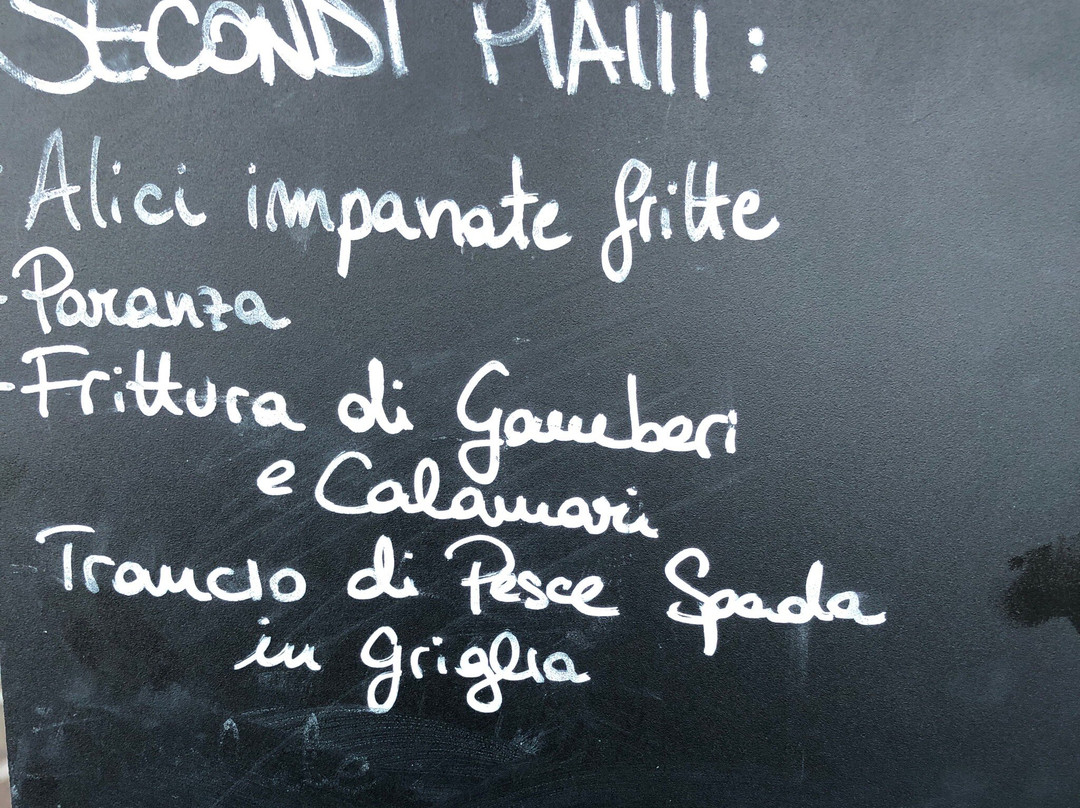 SECONDI PIATTI :
- Alici impanate fritte
- Paranza
- Frittura di Gamberi
e Calamari
Trancio di Pesce Spada
in Griglia